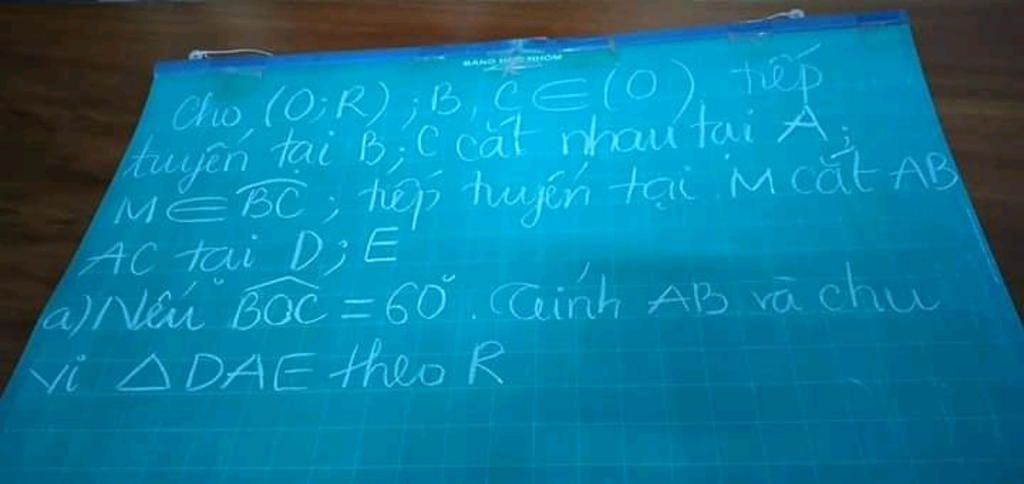 BẢNG HỌC NHÓM
Cho (O;R); B, C ∈ (O) tiếp
tuyến tại B; C cắt nhau tại A;
M ∈ BC; tiếp tuyến tại M cắt AB
AC tại D; E
a) Nếu BOC = 60°. Tính AB và chu
vi △DAE theo R